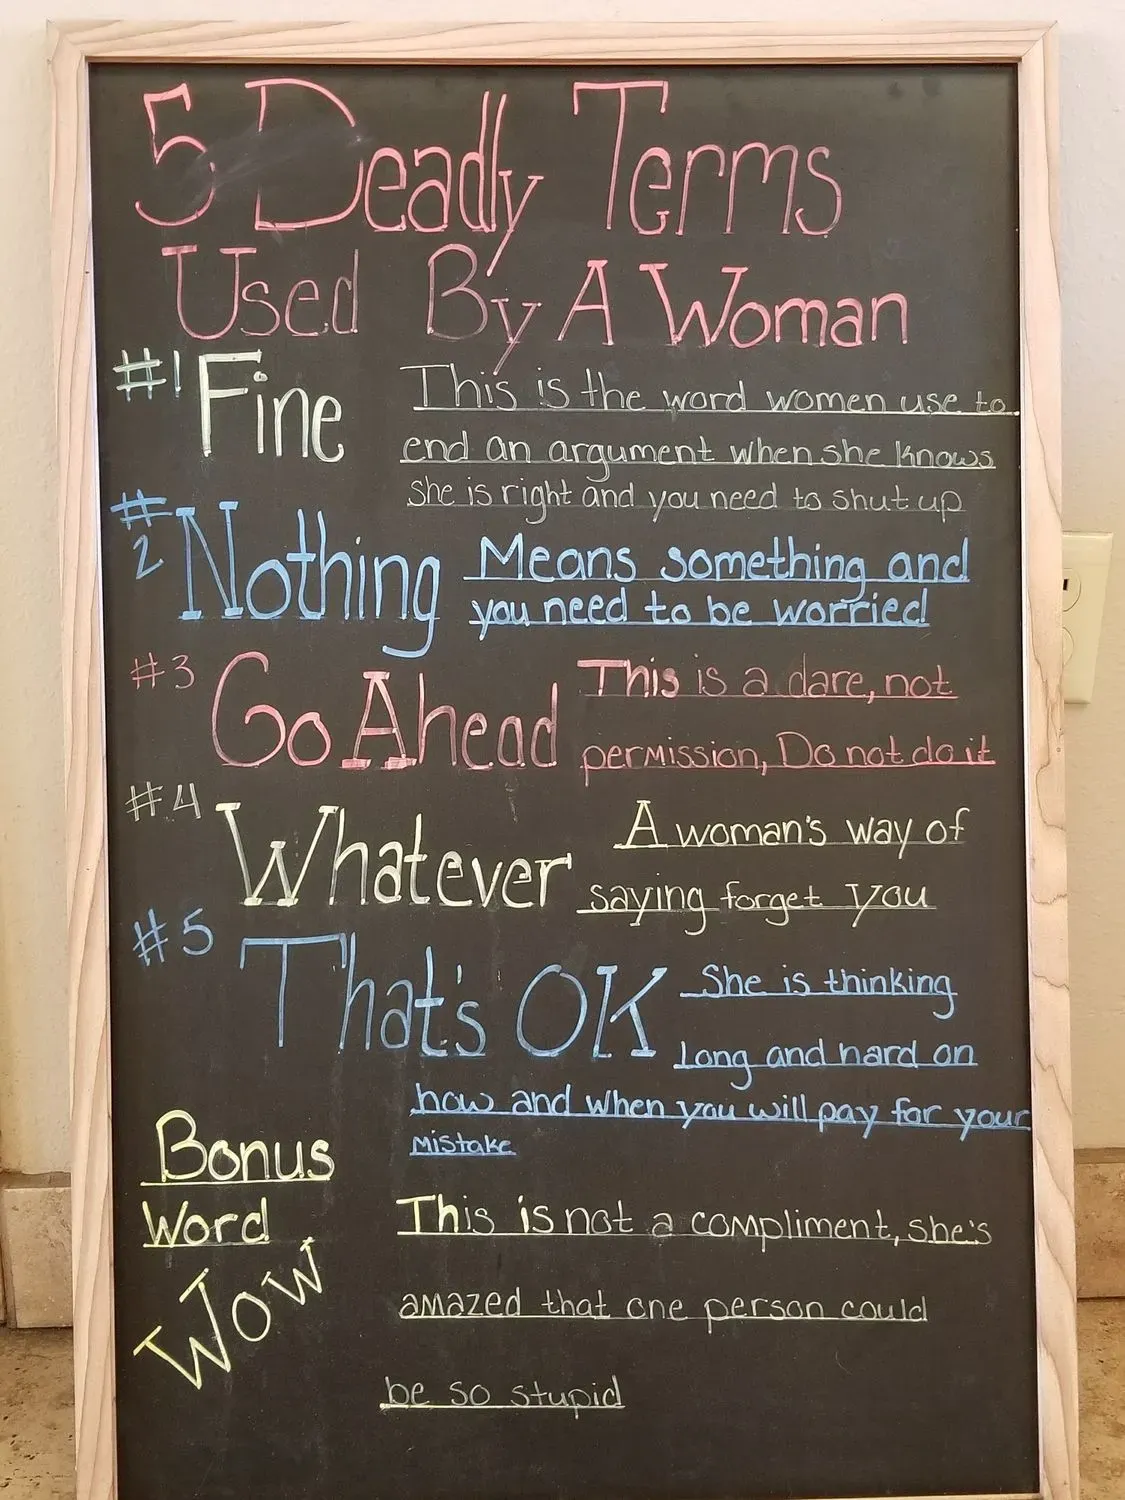 5 Deadly Terms
Used By A Woman
#1 Fine
This is the word women use to
end an argument when she knows
she is right and you need to shut up
#2 Nothing
Means something and
you need to be worried
#3 Go Ahead
This is a dare, not
permission, Do not do it
#4 Whatever
A woman's way of
saying forget you
#5 That's OK
She is thinking
long and hard on
how and when you will pay for your
mistake
Bonus
Word
Wow
This is not a compliment, she's
amazed that one person could
be so stupid